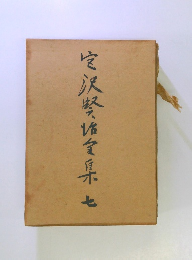 宮沢賢治全集 七